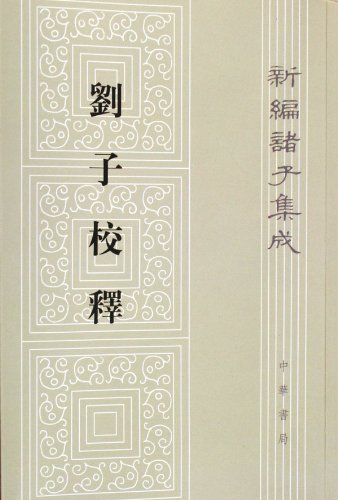 新編諸子集成
劉子校釋
中華書局